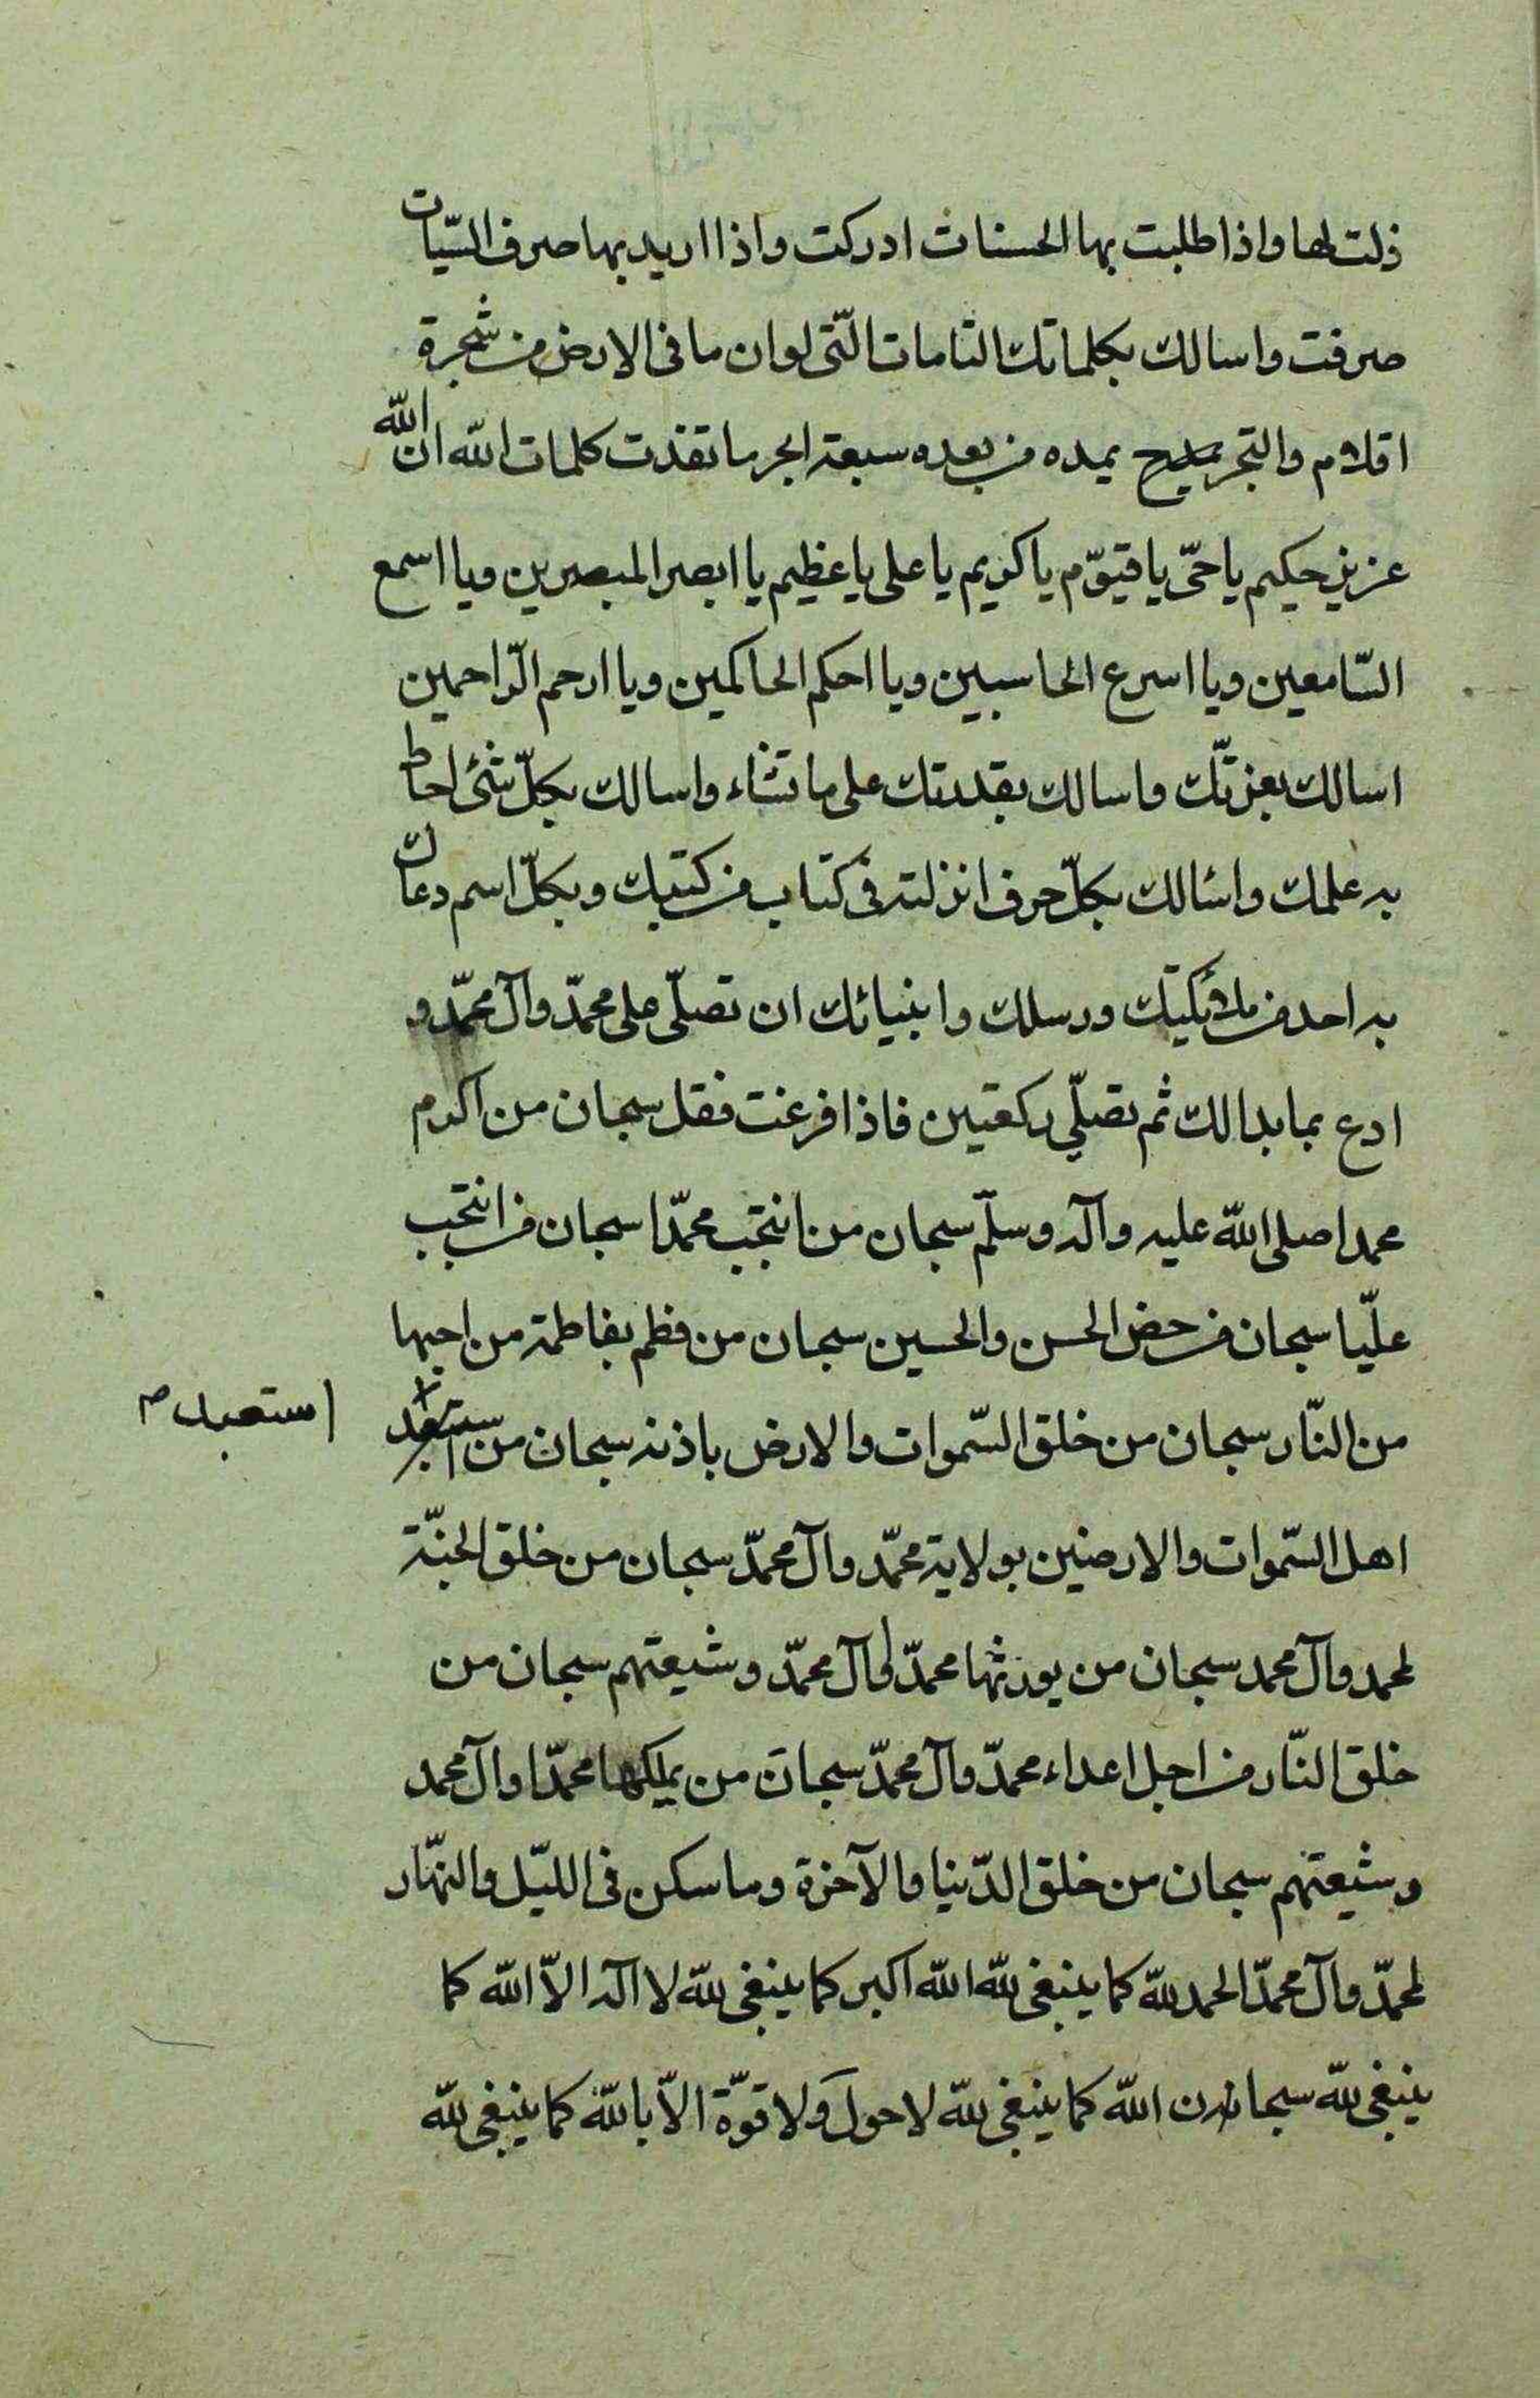 ذلت لها واذا طلبت بها الحسنات ادركت واذا اريد بها صرف السّيات
صرفت واسالك بكلماتك التامات الّتى لو ان ما فى الارض من شجرة
اقلام والبحر يمده من بعده سبعة ابحر ما نفدت كلمات الله ان الله
عزيز حكيم يا حىّ يا قيّوم يا كريم يا على يا عظيم يا ابصر المبصرين ويا اسمع
السّامعين ويا اسرع الحاسبين ويا احكم الحاكمين ويا ارحم الرّاحمين
اسالك بعزتّك واسالك بقدرتك على ما تشاء واسالك بكلّ شئ احاط
به علمك واسئالك بكلّ حرف انزلته فى كتاب من كتبك وبكلّ اسم دعاك
به احد من ملائكتك ورسلك وانبيائك ان تصلّى على محمدّ وآل محمّد و
ادع بما بدا لك ثم تصلّي ركعتين فاذا فرغت فقل سبحان من اكرم
محمدا صلى الله عليه وآله وسلّم سبحان من انتجب محمدّا سبحان من انتجب
عليّا سبحان من خص الحسن والحسين سبحان من فطم بفاطمة من احبها
من النّار سبحان من خلق السّموات والارض باذنه سبحان من استعبد
استعبد م
اهل السّموات والارضين بولاية محمّد وآل محمدّ سبحان من خلق الجنّة
لمحمد وآل محمد سبحان من يورثها محمدّ وآل محمدّ وشيعتهم سبحان من
خلق النّار من اجل اعداء محمدّ وآل محمدّ سبحان من يملكها محمدّا وآل محمد
وشيعتهم سبحان من خلق الدّنيا والآخرة وما سكن فى الليّل والنهّار
لمحمدّ وآل محمدّ الحمد للّه كما ينبغى للّه اللّه اكبر كما ينبغى للّه لا اله الاّ اللّه كما
ينبغى للّه سبحان اللّه كما ينبغى للّه لا حول ولا قوّة الاّ باللّه كما ينبغى للّه